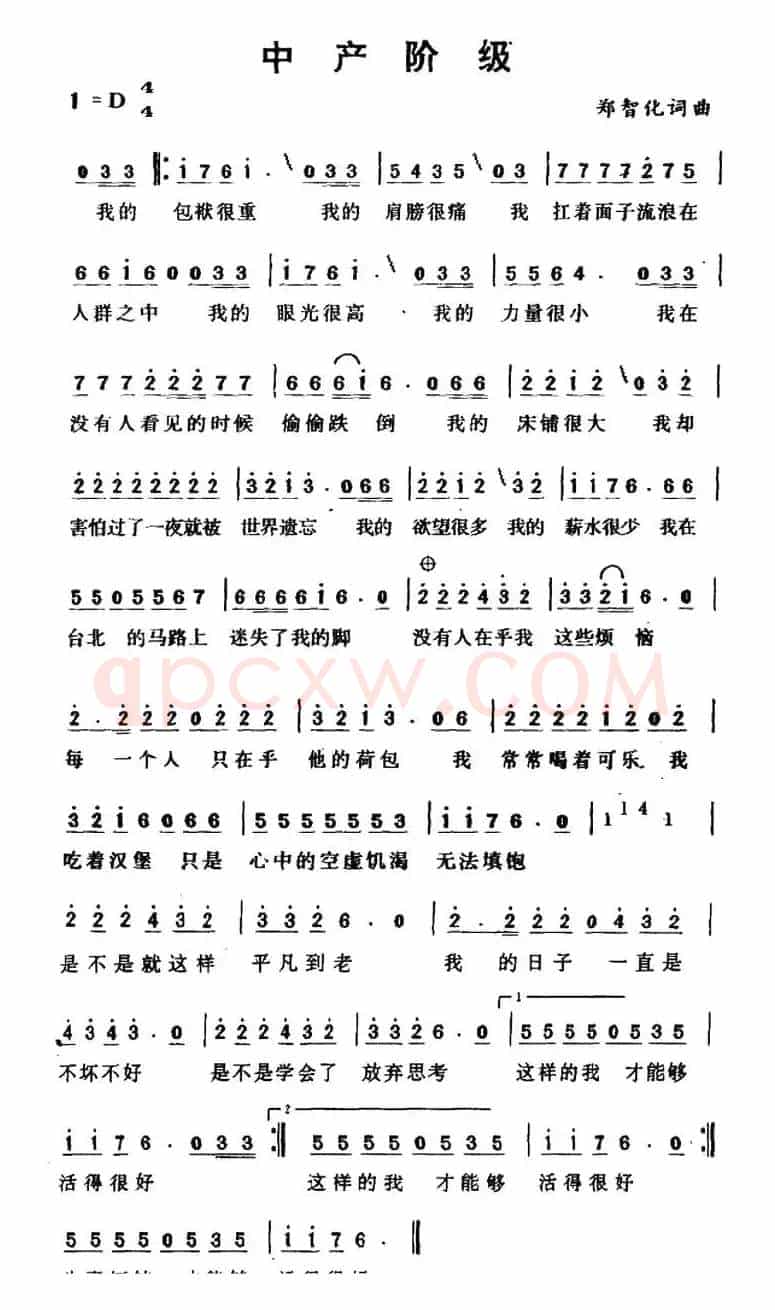 中产阶级
1=D 4/4
郑智化词曲
0 3 3 ‖: i 7 6 i . \ 0 3 3 | 5 4 3 5 \ 0 3 | 7 7 7 7 2 7 5 |
我的 包袱很重 我的 肩膀很痛 我 扛着面子流浪在
6 6 i 6 0 0 3 3 | i 7 6 i . \ 0 3 3 | 5 5 6 4 . 0 3 3 |
人群之中 我的 眼光很高 我的 力量很小 我在
7 7 7 2 2 2 7 7 | 6 6 6 i 6 . 0 6 6 | 2 2 i 2 \ 0 3 2 |
没有人看见的时候 偷偷跌倒 我的 床铺很大 我却
2 2 2 2 2 2 2 2 | 3 2 i 3 . 0 6 6 | 2 2 i 2 \ 3 2 | i i 7 6 . 6 6 |
害怕过了一夜就被 世界遗忘 我的 欲望很多 我的 薪水很少 我在
5 5 0 5 5 6 7 | 6 6 6 6 i 6 . 0 | 2 2 2 4 3 2 | 3 3 2 i 6 . 0 |
台北 的马路上 迷失了我的脚 没有人在乎我 这些烦恼
qpcxw.COM
2 . 2 2 2 0 2 2 2 | 3 2 i 3 . 0 6 | 2 2 2 2 i 2 0 2 |
每 一个人 只在乎 他的荷包 我 常常喝着可乐 我
3 2 i 6 0 6 6 | 5 5 5 5 5 5 3 | i i 7 6 . 0 | 1 1 4 1 |
吃着汉堡 只是 心中的空虚饥渴 无法填饱
2 2 2 4 3 2 | 3 3 2 6 . 0 | 2 . 2 2 2 0 4 3 2 |
是不是就这样 平凡到老 我 的日子 一直是
4 3 4 3 . 0 | 2 2 2 4 3 2 | 3 3 2 6 . 0 | 1 5 5 5 5 0 5 3 5 |
不坏不好 是不是学会了 放弃思考 这样的我 才能够
i i 7 6 . 0 3 3 :‖ 2 5 5 5 5 0 5 3 5 | i i 7 6 . 0 :‖
活得很好 这样的我 才能够 活得很好
5 5 5 5 0 5 3 5 | i i 7 6 ‖